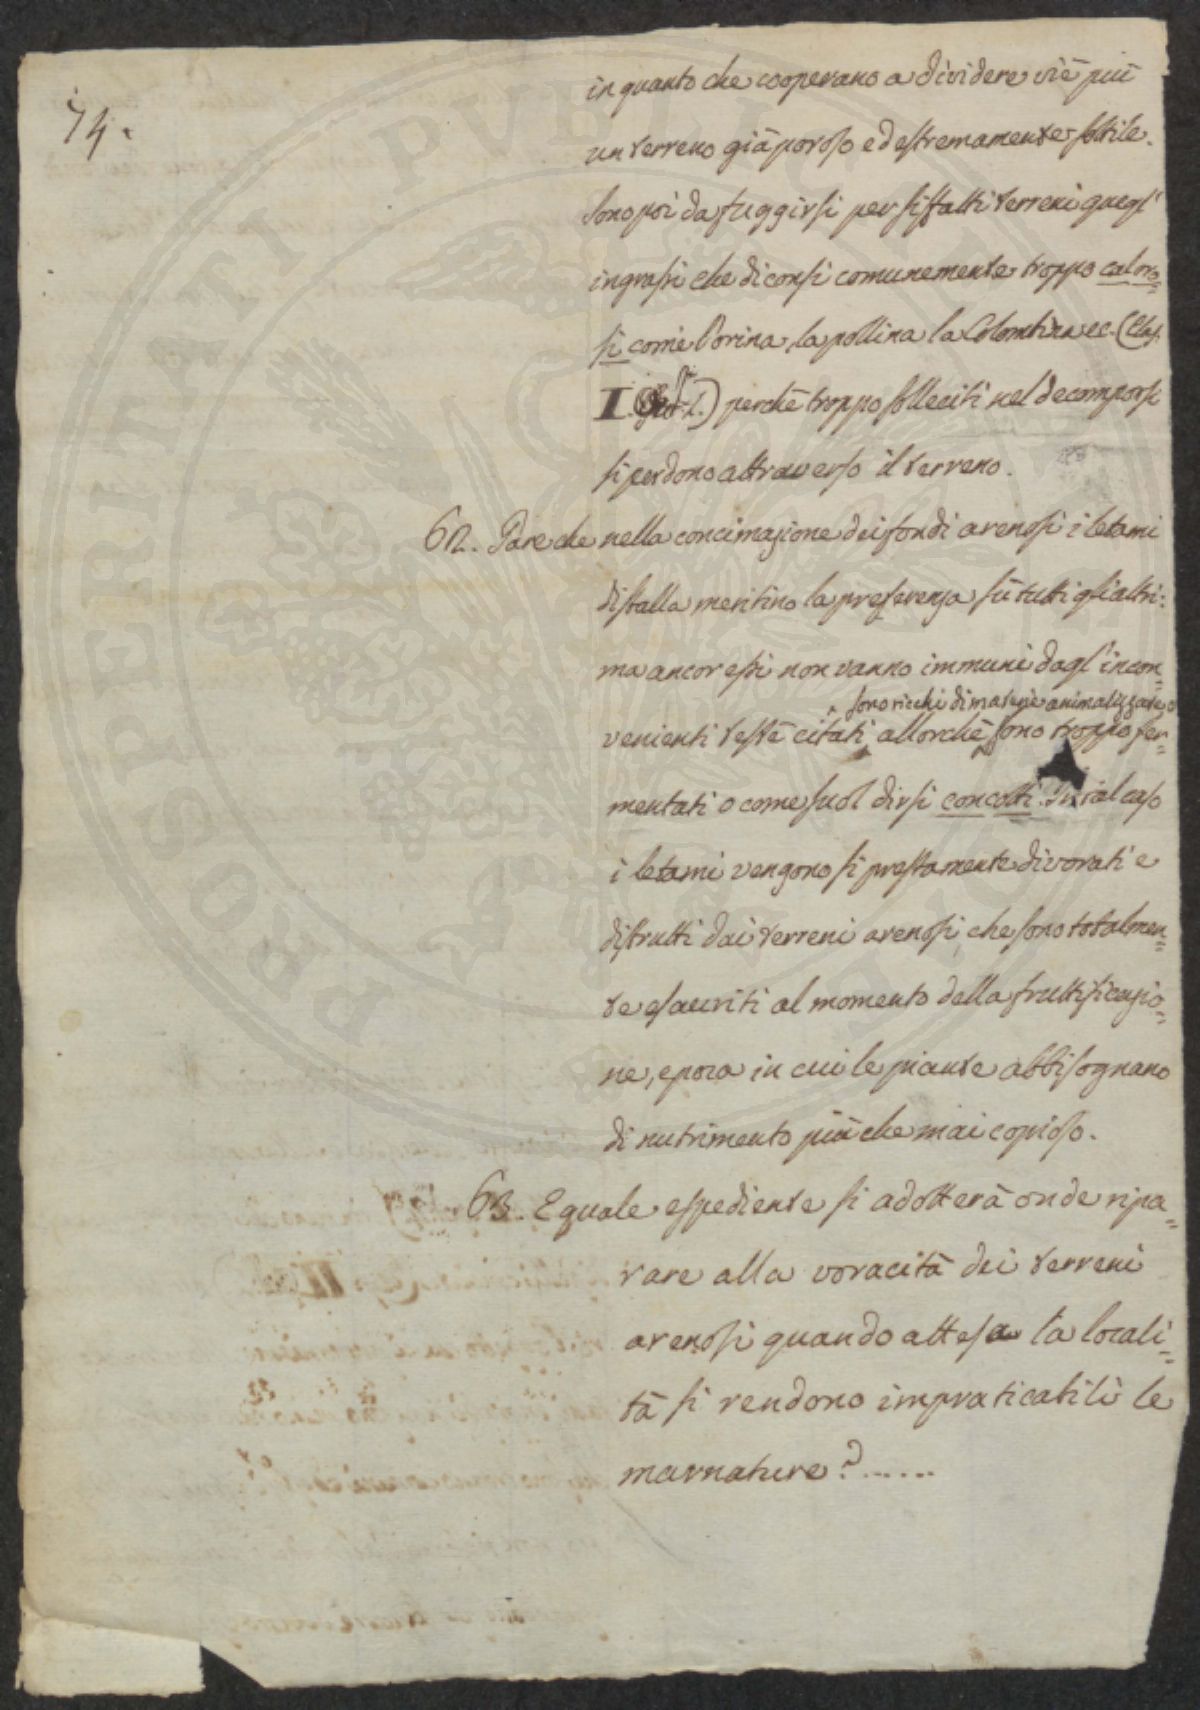 74.
in quanto che cooperano a dividere viè più
un terreno già poroso ed estremamente sottile.
Sono poi da fuggirsi per siffatti terreni quegl'
ingrassi che diconsi comunemente troppo caloro=
si come l'orina, la pollina la Colombina ec. (Clas.
I. ) perchè troppo solleciti nel decomporsi
si perdono attraverso il terreno.
62. Pare che nella concimazione dei fondi arenosi i letami
di stalla meritino la preferenza sù tutti gli altri:
ma ancor essi non vanno immuni dagl'incon=
sono ricchi di materie animalizzate o
venienti testè citati allorchè sono troppo fer=
mentati o come suol dirsi concotti. In tal caso
i letami vengono sì prestamente divorati e
distrutti dai terreni arenosi che sono totalmen=
te esauriti al momento della fruttificazio=
ne, epoca in cui le piante abbisognano
di nutrimento più che mai copioso.
63. E quale espediente si adotterà onde ripa=
rare alla voracità dei terreni
arenosi quando attesa la locali=
tà si rendono impraticabili le
marnature?......
PROSPERITATI PUBLICAE